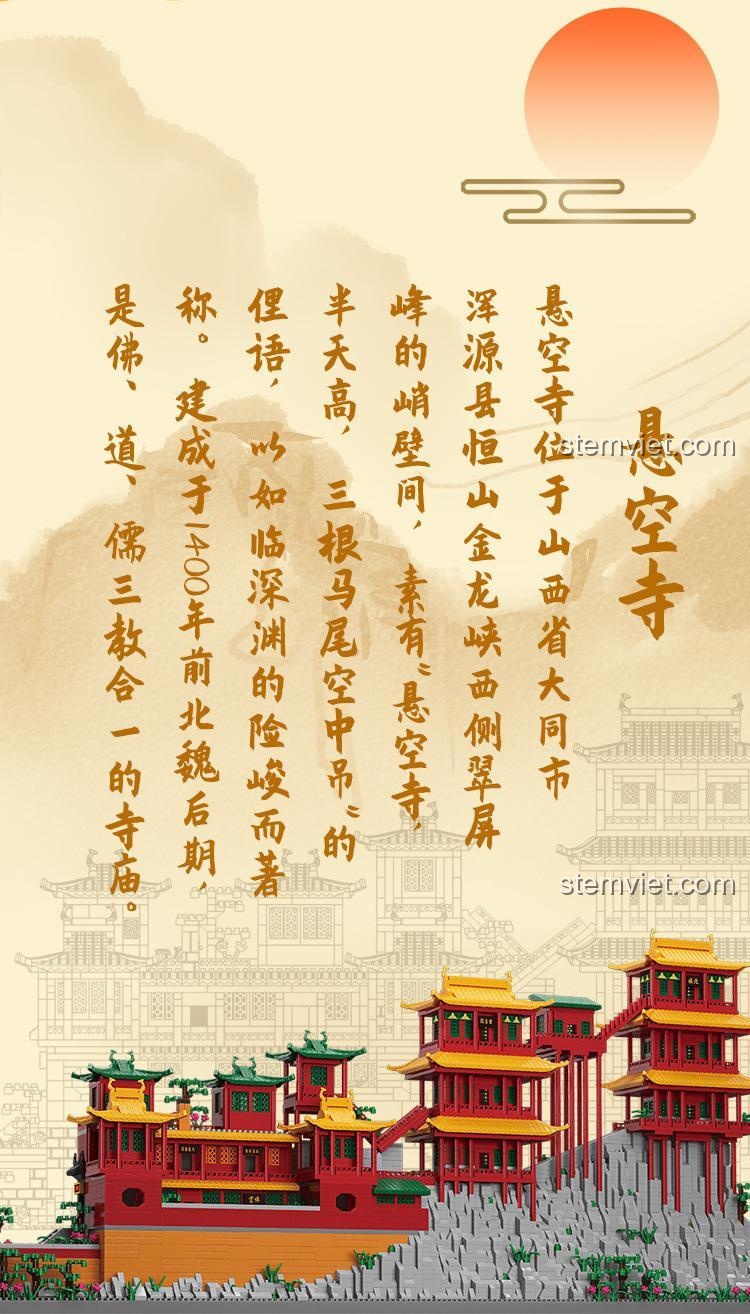 悬空寺
悬空寺位于山西省大同市
浑源县恒山金龙峡西侧翠屏
峰的峭壁间，素有“悬空寺，
半天高，三根马尾空中吊”的
俚语，以如临深渊的险峻而著
称。建成于1400年前北魏后期，
是佛、道、儒三教合一的寺庙。
stemviet.com
stemviet.com